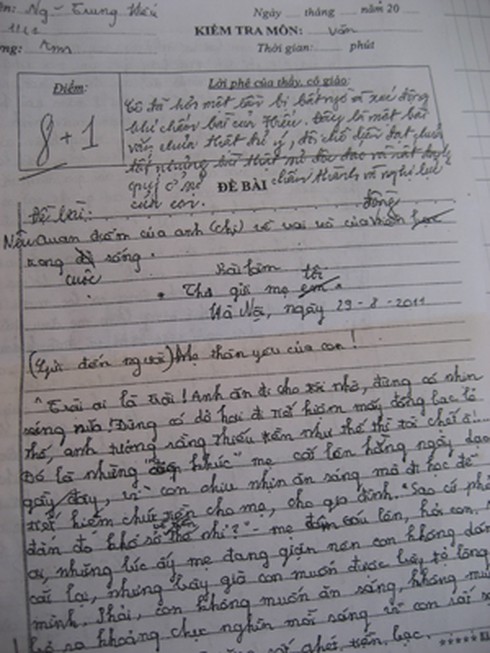 ên: Ng - Trung Hiếu Ngày ... tháng ... năm 20 ...
11 KIỂM TRA MÔN: Văn
ng: Ams Thời gian: ... phút
Điểm: Lời phê của thầy, cô giáo:
8 + 1
Cô đã hơn một lần bị bất ngờ và xúc động
khi chấm bài của Hiếu. Đây là một bài
văn chưa thật đủ ý, đôi chỗ diễn đạt chưa
tốt nhưng
quý ở sự chân thành và nghị lực
của con.
ĐỀ BÀI
Đề bài:
Nêu quan điểm của anh (chị) về vai trò của đồng
trong cuộc sống.
Bài làm
Thư gửi mẹ tôi
Hà Nội, ngày 29-8-2011
(Gửi đến người) Mẹ thân yêu của con!
"Trời ơi là trời! Anh ăn đi cho tôi nhờ, đừng có nhịn
sáng nữa! Đừng có dở hơi đi tiết kiệm mấy đồng bạc lẻ
thế, anh tưởng sống thiếu tiền như thế thì tôi chết à!...
Đó là những "điệp khúc" mẹ cất lên hằng ngày dạo
gần đây, vì con chịu nhịn ăn sáng mà đi học để
tiết kiệm chút tiền cho mẹ, cho gia đình. "Sao có phải
đắn đo khổ sở thế nhỉ?" - mẹ cáu lên, hỏi con.
ơi, những lúc ấy mẹ đang giận nên con không dám
cãi lại, nhưng bây giờ con muốn được bày tỏ lòng
mình. Phải, con không muốn ăn sáng, không muốn
bỏ ra khoảng chục nghìn mỗi sáng vì con rất sợ
ghét tiền bạc.